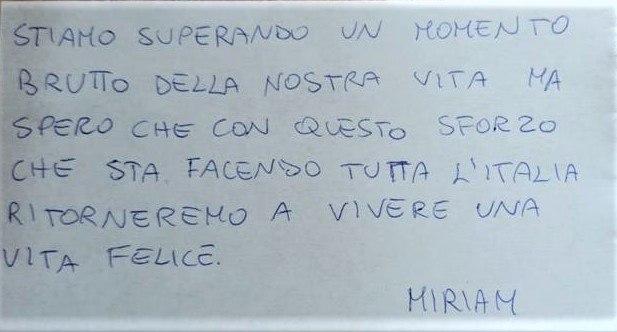 STIAMO SUPERANDO UN MOMENTO
BRUTTO DELLA NOSTRA VITA MA
SPERO CHE CON QUESTO SFORZO
CHE STA FACENDO TUTTA L'ITALIA
RITORNEREMO A VIVERE UNA
VITA FELICE.
MIRIAM